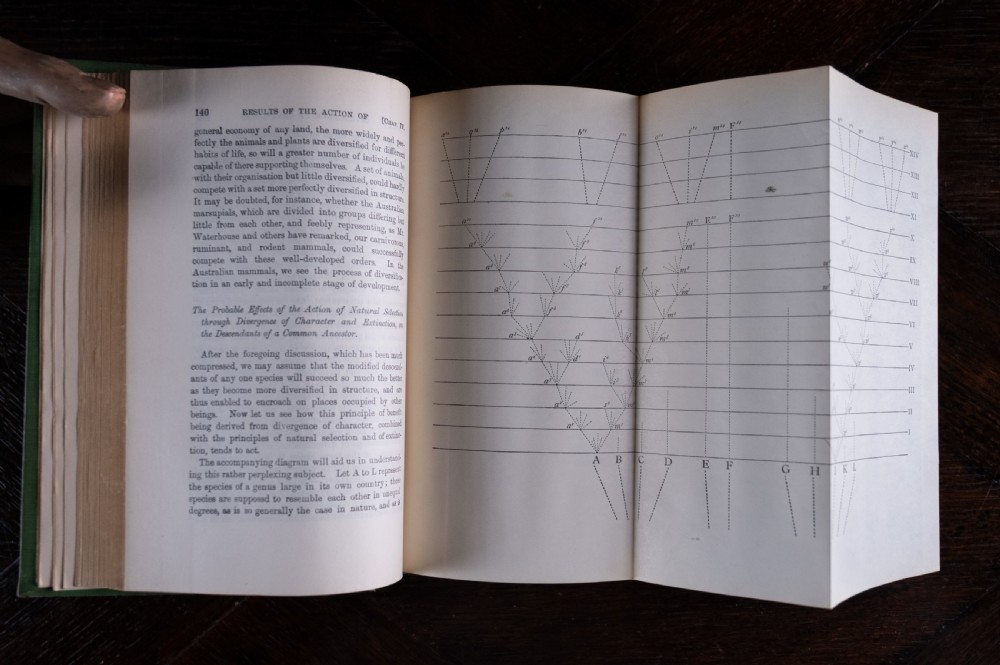 140 RESULTS OF THE ACTION OF [CHAP. IV.
general economy of any land, the more widely and per-
fectly the animals and plants are diversified for different
habits of life, so will a greater number of individuals be
capable of there supporting themselves. A set of animals,
with their organisation but little diversified, could hardly
compete with a set more perfectly diversified in structure.
It may be doubted, for instance, whether the Australian
marsupials, which are divided into groups differing but
little from each other, and feebly representing, as Mr.
Waterhouse and others have remarked, our carnivorous,
ruminant, and rodent mammals, could successfully
compete with these well-developed orders. In the
Australian mammals, we see the process of diversifica-
tion in an early and incomplete stage of development.
The Probable Effects of the Action of Natural Selection
through Divergence of Character and Extinction, on
the Descendants of a Common Ancestor.
After the foregoing discussion, which has been much
compressed, we may assume that the modified descend-
ants of any one species will succeed so much the better
as they become more diversified in structure, and are
thus enabled to encroach on places occupied by other
beings. Now let us see how this principle of benefit
being derived from divergence of character, combined
with the principles of natural selection and of extinc-
tion, tends to act.
The accompanying diagram will aid us in understand-
ing this rather perplexing subject. Let A to L represent
the species of a genus large in its own country; these
species are supposed to resemble each other in unequal
degrees, as is so generally the case in nature, and as is
XIV
XIII
XII
XI
X
IX
VIII
VII
VI
V
IV
III
II
I
A B C D E F G H I K L